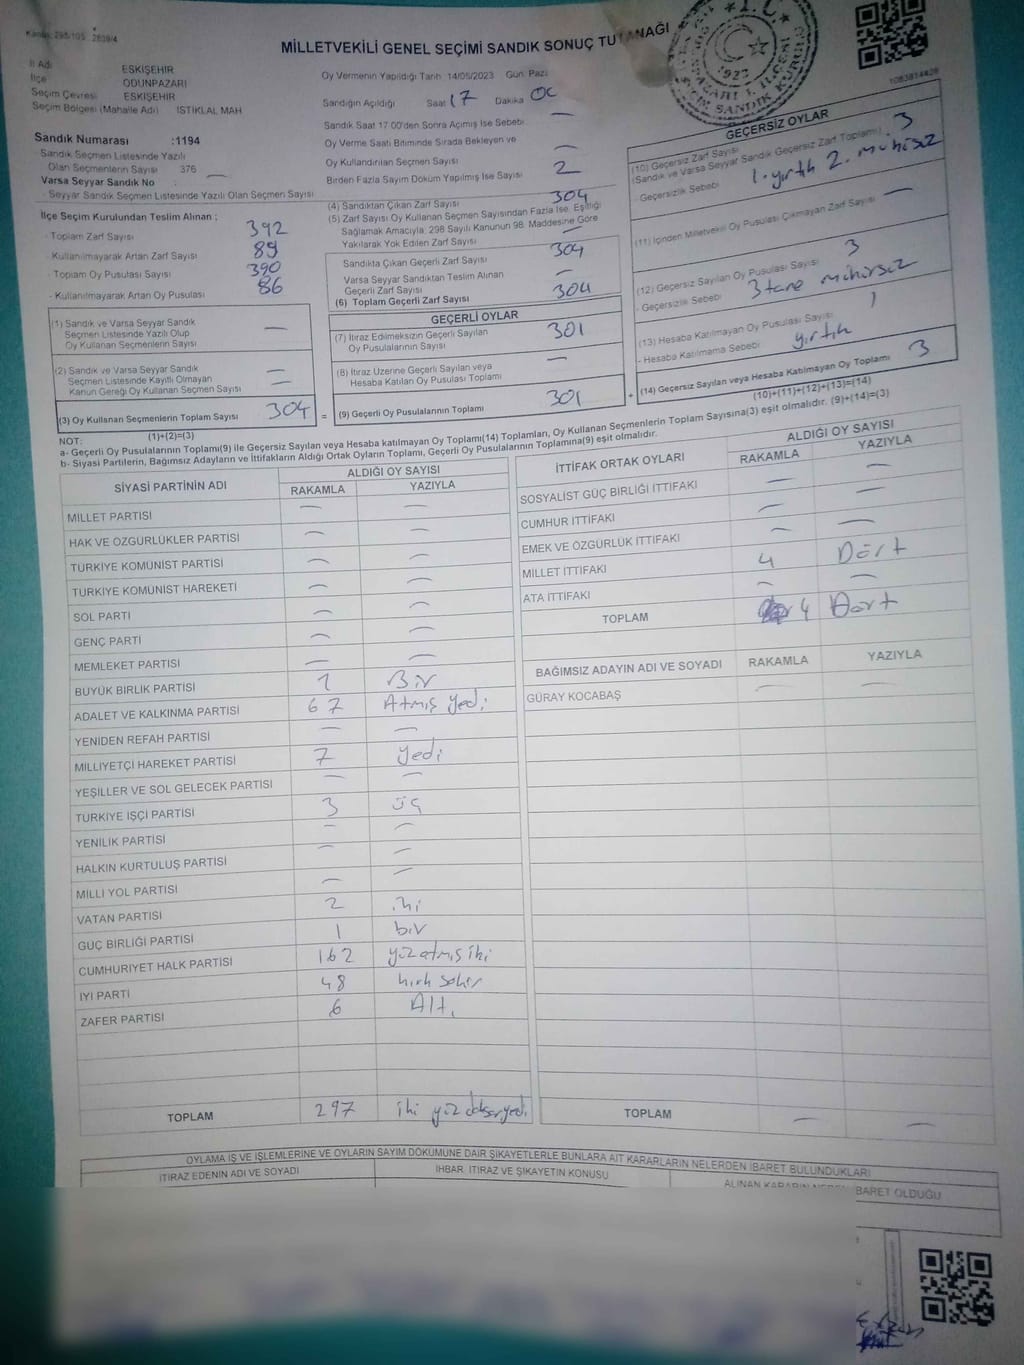 Kanun: 298/105 2839/4
MİLLETVEKİLİ GENEL SEÇİMİ SANDIK SONUÇ TUTANAĞI
İl Adı ESKİŞEHİR
İlçe ODUNPAZARI
Seçim Çevresi ESKİŞEHİR
Seçim Bölgesi (Mahalle Adı) İSTİKLAL MAH
Sandık Numarası :1194
Sandık Seçmen Listesinde Yazılı
Olan Seçmenlerin Sayısı 376
Varsa Seyyar Sandık No —
- Seyyar Sandık Seçmen Listesinde Yazılı Olan Seçmen Sayısı
İlçe Seçim Kurulundan Teslim Alınan ;
- Toplam Zarf Sayısı 392
- Kullanılmayarak Artan Zarf Sayısı 89
- Toplam Oy Pusulası Sayısı 390
- Kullanılmayarak Artan Oy Pusulası 86
(1) Sandık ve Varsa Seyyar Sandık
Seçmen Listesinde Yazılı Olup
Oy Kullanan Seçmenlerin Sayısı —
(2) Sandık ve Varsa Seyyar Sandık
Seçmen Listesinde Kayıtlı Olmayan
Kanun Gereği Oy Kullanan Seçmen Sayısı —
(3) Oy Kullanan Seçmenlerin Toplam Sayısı 304 =
(1)+(2)=(3)
Oy Vermenin Yapıldığı Tarih 14/05/2023 Gün: Pazar
Sandığın Açıldığı Saat 17 Dakika 00
Sandık Saat 17.00'den Sonra Açılmış İse Sebebi —
Oy Verme Saati Bitiminde Sırada Bekleyen ve
Oy Kullandırılan Seçmen Sayısı —
Birden Fazla Sayım Döküm Yapılmış İse Sayısı 2
(4) Sandıktan Çıkan Zarf Sayısı 304
(5) Zarf Sayısı Oy Kullanan Seçmen Sayısından Fazla İse, Eşitliği
Sağlamak Amacıyla; 298 Sayılı Kanunun 98. Maddesine Göre
Yakılarak Yok Edilen Zarf Sayısı —
Sandıkta Çıkan Geçerli Zarf Sayısı 304
Varsa Seyyar Sandıktan Teslim Alınan
Geçerli Zarf Sayısı —
(6) Toplam Geçerli Zarf Sayısı 304
GEÇERLİ OYLAR
(7) İtiraz Edilmeksizin Geçerli Sayılan
Oy Pusulalarının Sayısı 301
(8) İtiraz Üzerine Geçerli Sayılan veya
Hesaba Katılan Oy Pusulası Toplamı —
(9) Geçerli Oy Pusulalarının Toplamı 301 +
1083814426
GEÇERSİZ OYLAR
(10) Geçersiz Zarf Sayısı
(Sandık ve Varsa Seyyar Sandık Geçersiz Zarf Toplamı) 3
- Geçersizlik Sebebi 1. yırtık 2. mühürsüz
(11) İçinden Milletvekili Oy Pusulası Çıkmayan Zarf Sayısı —
(12) Geçersiz Sayılan Oy Pusulası Sayısı 3
- Geçersizlik Sebebi 3 tane mühürsüz
(13) Hesaba Katılmayan Oy Pusulası Sayısı 1
- Hesaba Katılmama Sebebi yırtık
(14) Geçersiz Sayılan veya Hesaba Katılmayan Oy Toplamı 3
(10)+(11)+(12)+(13)=(14)
NOT:
a- Geçerli Oy Pusulalarının Toplamı(9) ile Geçersiz Sayılan veya Hesaba katılmayan Oy Toplamı(14) Toplamları, Oy Kullanan Seçmenlerin Toplam Sayısına(3) eşit olmalıdır. (9)+(14)=(3)
b- Siyasi Partilerin, Bağımsız Adayların ve İttifakların Aldığı Ortak Oyların Toplamı, Geçerli Oy Pusulalarının Toplamına(9) eşit olmalıdır.
SİYASİ PARTİNİN ADI ALDIĞI OY SAYISI
RAKAMLA YAZIYLA
MİLLET PARTİSİ — —
HAK VE ÖZGÜRLÜKLER PARTİSİ — —
TÜRKİYE KOMÜNİST PARTİSİ — —
TÜRKİYE KOMÜNİST HAREKETİ — —
SOL PARTİ — —
GENÇ PARTİ — —
MEMLEKET PARTİSİ — —
BÜYÜK BİRLİK PARTİSİ 1 Bir
ADALET VE KALKINMA PARTİSİ 67 Atmış yedi
YENİDEN REFAH PARTİSİ — —
MİLLİYETÇİ HAREKET PARTİSİ 7 yedi
YEŞİLLER VE SOL GELECEK PARTİSİ — —
TÜRKİYE İŞÇİ PARTİSİ 3 üç
YENİLİK PARTİSİ — —
HALKIN KURTULUŞ PARTİSİ — —
MİLLİ YOL PARTİSİ — —
VATAN PARTİSİ 2 iki
GÜÇ BİRLİĞİ PARTİSİ 1 bir
CUMHURİYET HALK PARTİSİ 162 yüz atmış iki
İYİ PARTİ 48 kırk sekiz
ZAFER PARTİSİ 6 Altı
TOPLAM 297 iki yüz doksan yedi
İTTİFAK ORTAK OYLARI ALDIĞI OY SAYISI
RAKAMLA YAZIYLA
SOSYALİST GÜÇ BİRLİĞİ İTTİFAKI — —
CUMHUR İTTİFAKI — —
EMEK VE ÖZGÜRLÜK İTTİFAKI — —
MİLLET İTTİFAKI 4 Dört
ATA İTTİFAKI — —
TOPLAM 4 Dört
BAĞIMSIZ ADAYIN ADI VE SOYADI RAKAMLA YAZIYLA
GÜRAY KOCABAŞ — —
TOPLAM — —
OYLAMA İŞ VE İŞLEMLERİNE VE OYLARIN SAYIM DÖKÜMÜNE DAİR ŞİKAYETLERLE BUNLARA AİT KARARLARIN NELERDEN İBARET BULUNDUKLARI
İTİRAZ EDENİN ADI VE SOYADI İHBAR, İTİRAZ VE ŞİKAYETİN KONUSU ALINAN KARARIN NEDEN İBARET OLDUĞU